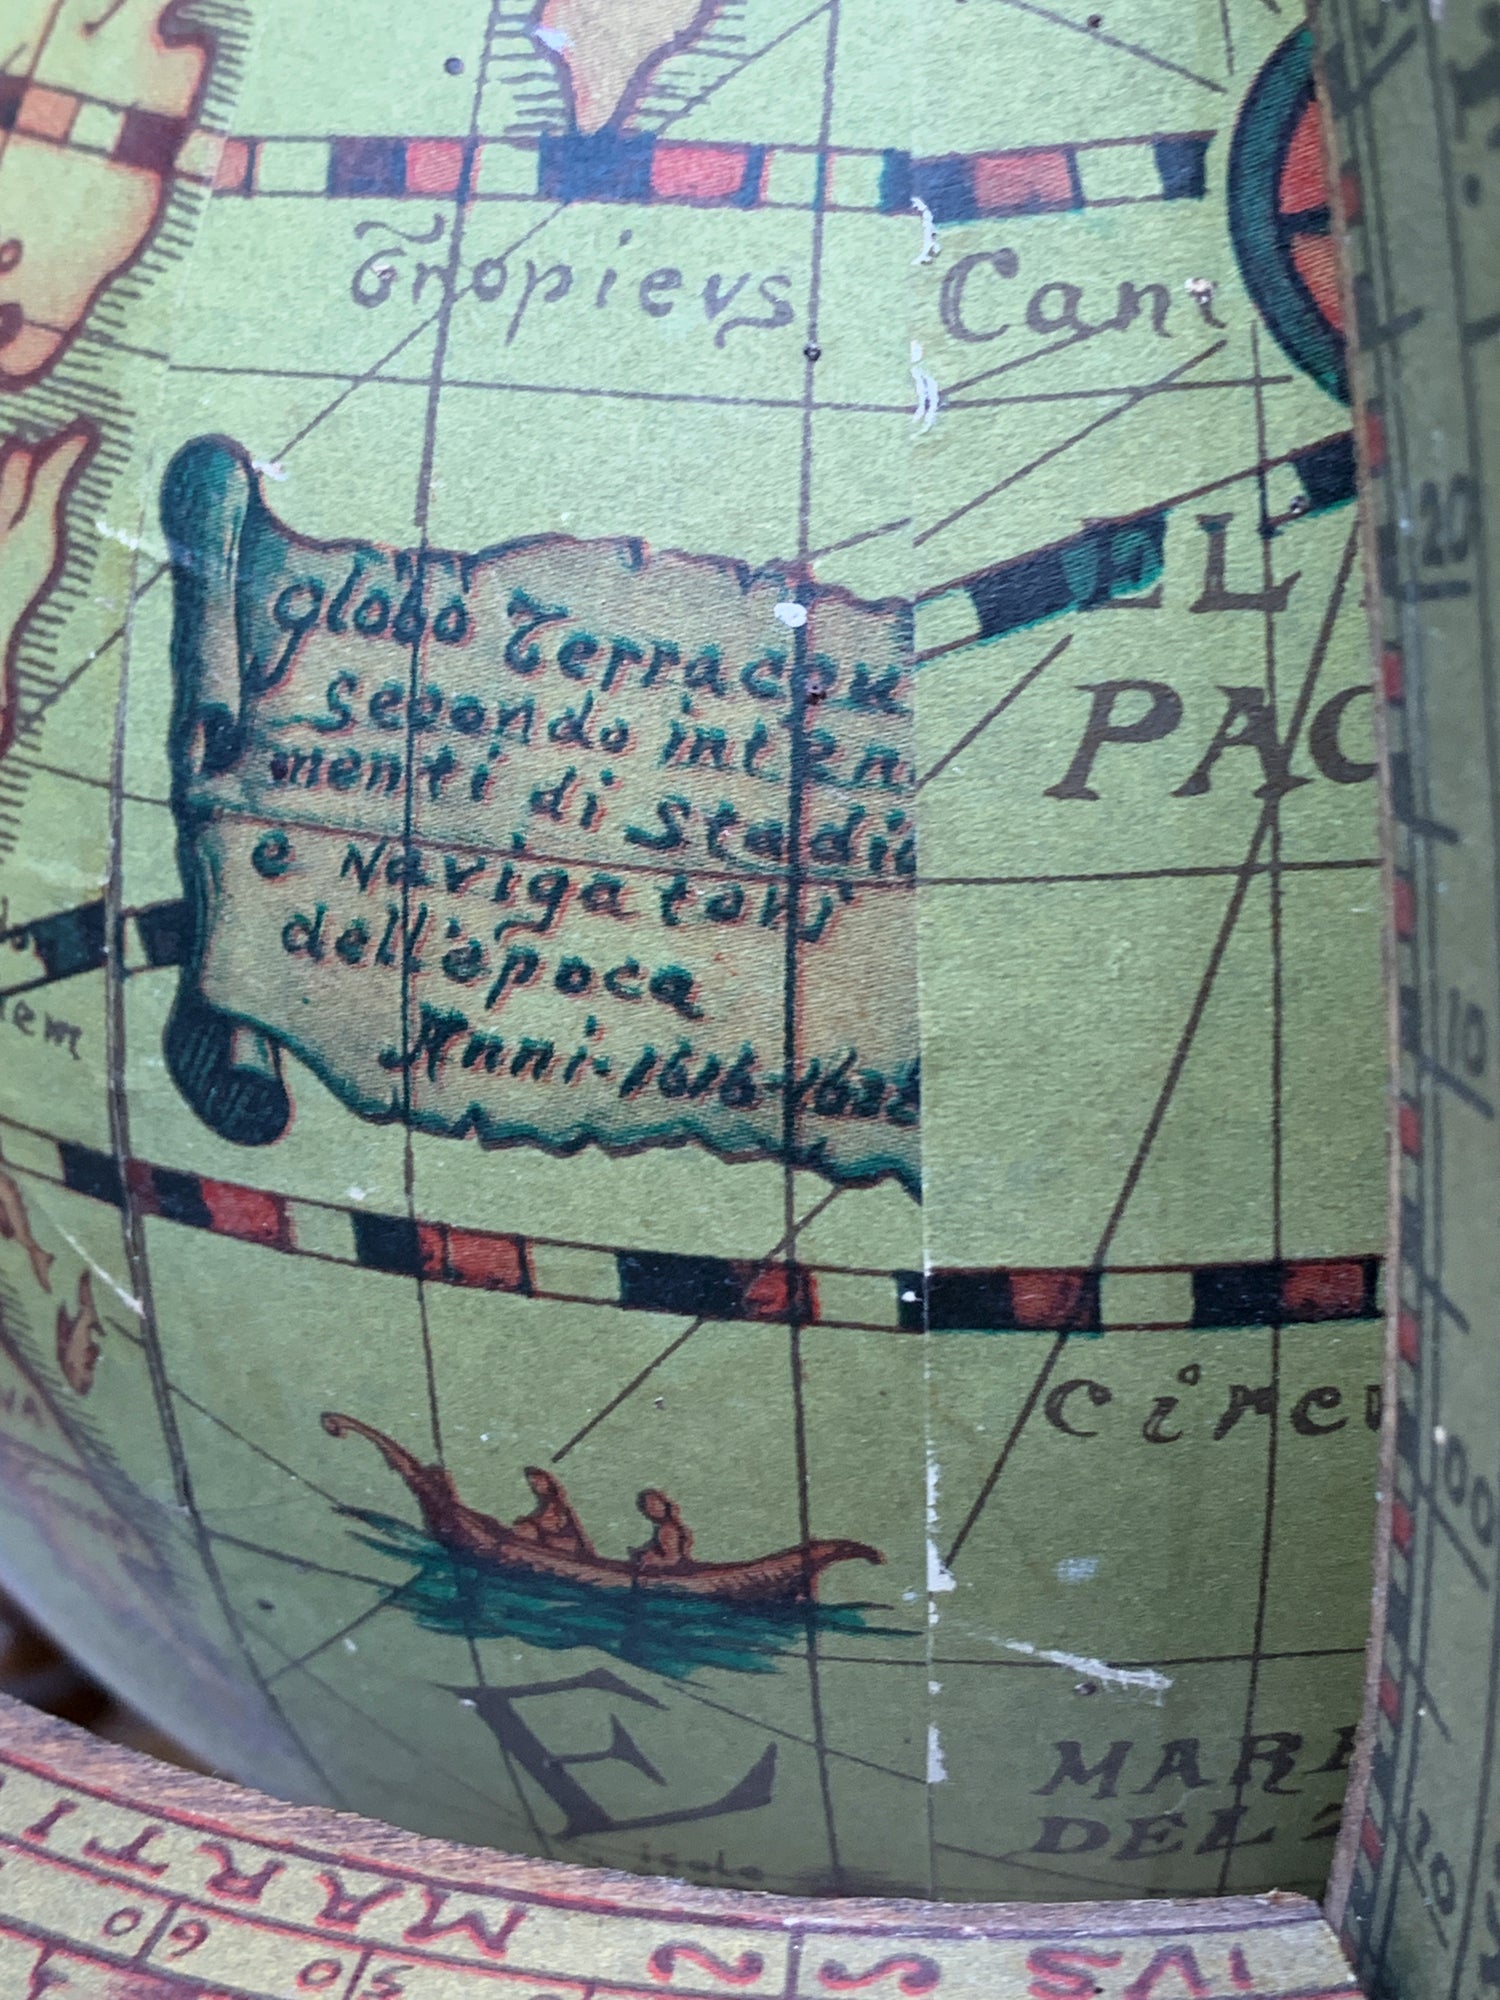 Tropicvs Can
EL
PAC
globo Terracqu
secondo inten
menti di Stadio
e Navigatori
dell'apoca
Anni-1616-1628
em
Circu
E
MARE
DEL
isole
MARTI
60
50
IVS
15
10
100
10